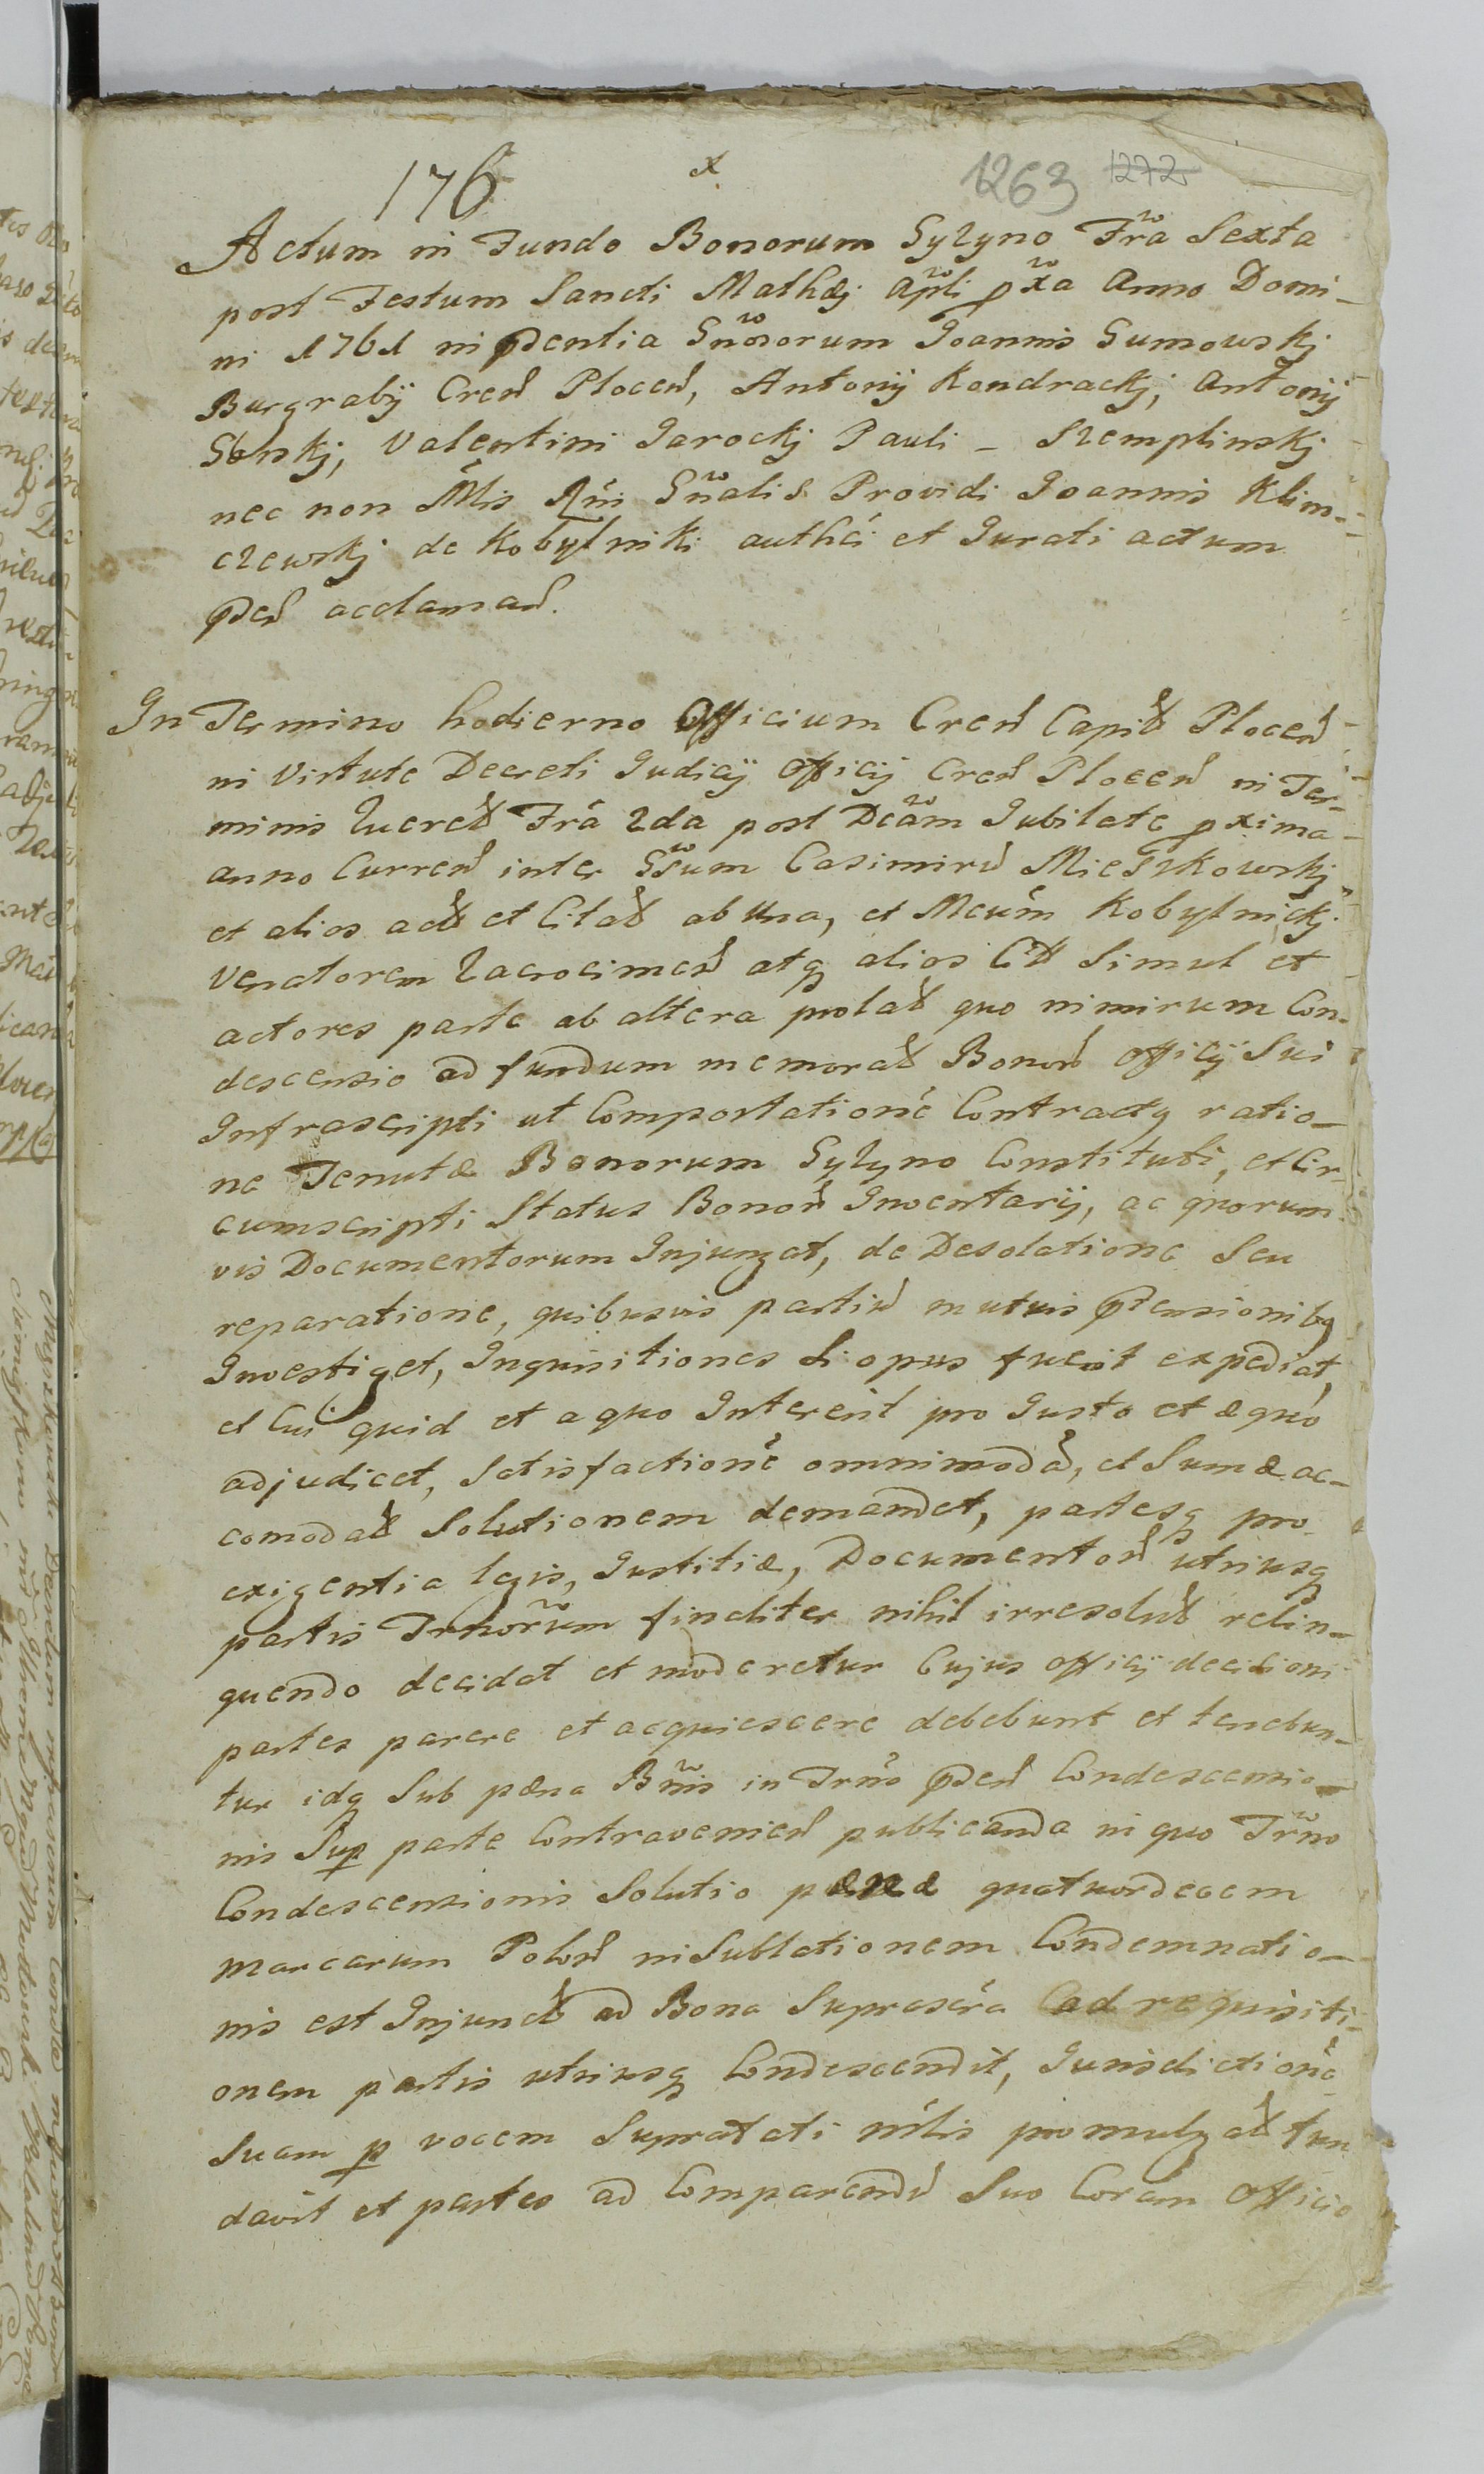 176 x 1263 1272
Actum in Fundo Bonorum Gylyno Fr̃a Sexta
post Festum Sancti Mathæj Apl̃i px̃a Anno Domi-
ni 1761 in pñdentia Gñosorum Joannis Gumowskj
Burgrabÿ Cren̄ Plocen̄, Antonÿ Kondrackj, Antonÿ
Valentini Jarockj Pauli - Szemplinskj
nec non Mĺis Rñi Gñalis Providi Joannis Klim-
czewskj de Kobylniki authći et Jurati actum
pñden̄ acclaman̄.
In Termino hodierno Officium Cren̄ Capit̃ Plocen̄
in Virtute Decreti Judicÿ Officÿ Cren̄ Plocen̄ in Ter-
minis Fŕa 2da post Dcãm Jubilate pxima
anno Curren̄ inter Gs̃um Casimirū Mieszkowskj
et alios act̃ et Citat̃ ab una, et Mcúm Kobylnickj
Venatorem Zacrocimen̄ atq alios Citt̃ Simul et
actores parte ab altera prolat̃ quo nimirum Con-
descensio ad fundum memorat̃ Bonor̄ Officÿ Sui
Infrascripti ut Comportationē Contractq ratio-
ne Tenutæ Bonorum Gylyno Constituti, et Cir-
cumscripti Status Bonor̄ Inventarÿ, ac quorum-
vis Documentorum Injungat, de Desolatione Seu
reparatione, quibusvis partiū mutuis pñtensionibq
Investiget, Inquisitiones Si opus fuerit expediat,
et Cui quid et a quo Intererit pro Justo et æquo
adjudicet, Satisfactionē omnimodā, et Sumæ ac-
comodat̃ Solutionem demandet, partesq pro
exigentia legis, Justitiæ, Documentor̄ utriusq
partis Trñorum finaliter nihil irresolut̃ relin-
quendo decidat et moderetur Cujus Officÿ decisioni
partes parere et acquiescere debebunt et tenebun-
tur idq Sub pæna Bñis in Trño pñden̄ Condescensio-
nis Sup parte Contravenien̄ publicanda in quo Trño
Condescensionis Solutio pænæ quatuordecem
Marcarum Polon̄ in Sublationem Condemnatio-
nis est Injunct̃ ad Bona Suprascŕa ad requisiti-
onem partis utriusq Condescendit, Jurisdictionē
Suam p vocem Supratati mĺis promulgat̃ fun
davit et partes ad Comparendū Suo Coram Officio